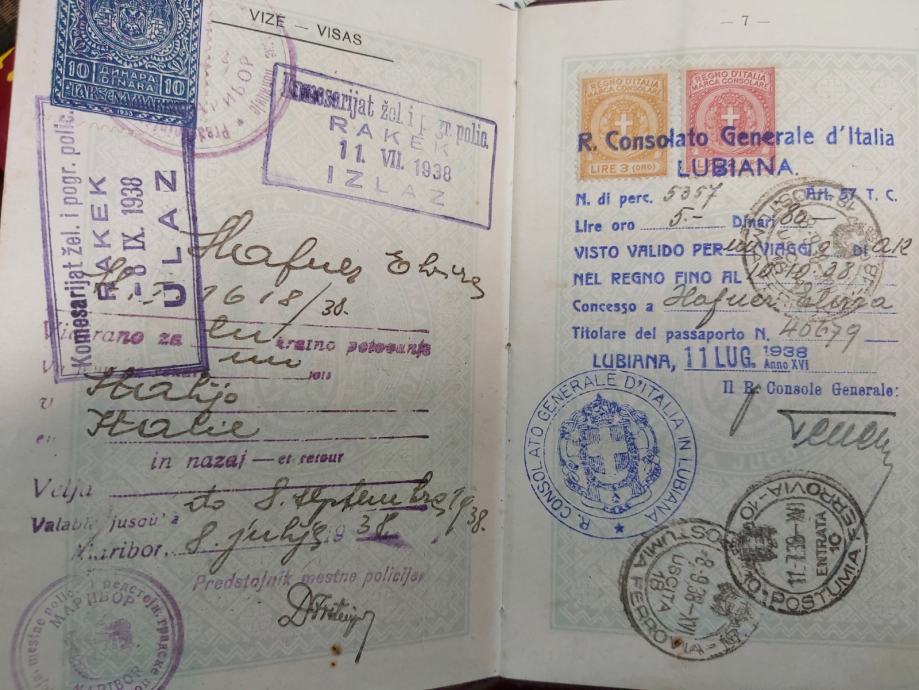 VIZE – VISAS
10 10
ДИНАРА
DINARA
МАРИБОР
Komesarijat žel. i pogr. polic.
RAKEK
11. VII. 1938
IZLAZ
Komesarijat žel. i pogr. polic.
RAKEK
-8 IX. 1938
ULAZ
Hafner Elvira
1618/38.
za
potovanje
Italijo
en Italie
in nazaj — et retour
Velja do 8. septembra 1938.
Valable jusqu'à
Maribor, 8. julija 1938.
Predstojnik mestne policije
МАРИБОР
MARIBOR
– 7 –
REGNO D'ITALIA
MARCA CONSOLARE
LIRE 3 (ORO)
REGNO D'ITALIA
MARCA CONSOLARE
R. Consolato Generale d'Italia
LUBIANA.
N. di perc. 5357 Art. 57 T. C.
Lire oro 5.- Dinari
VISTO VALIDO PER VIAGGI DI
NEL REGNO FINO AL
Concesso a Hafner Elvira
Titolare del passaporto N. 40679
LUBIANA, 11 LUG. 1938
Anno XVI
Il R. Console Generale:
R. CONSOLATO GENERALE D'ITALIA IN LUBIANA
POSTUMIA FERROVIA
11.7.38-XVI
ENTRATA
10
POSTUMIA FERROVIA
-8.9.38-XVI
USCITA
18